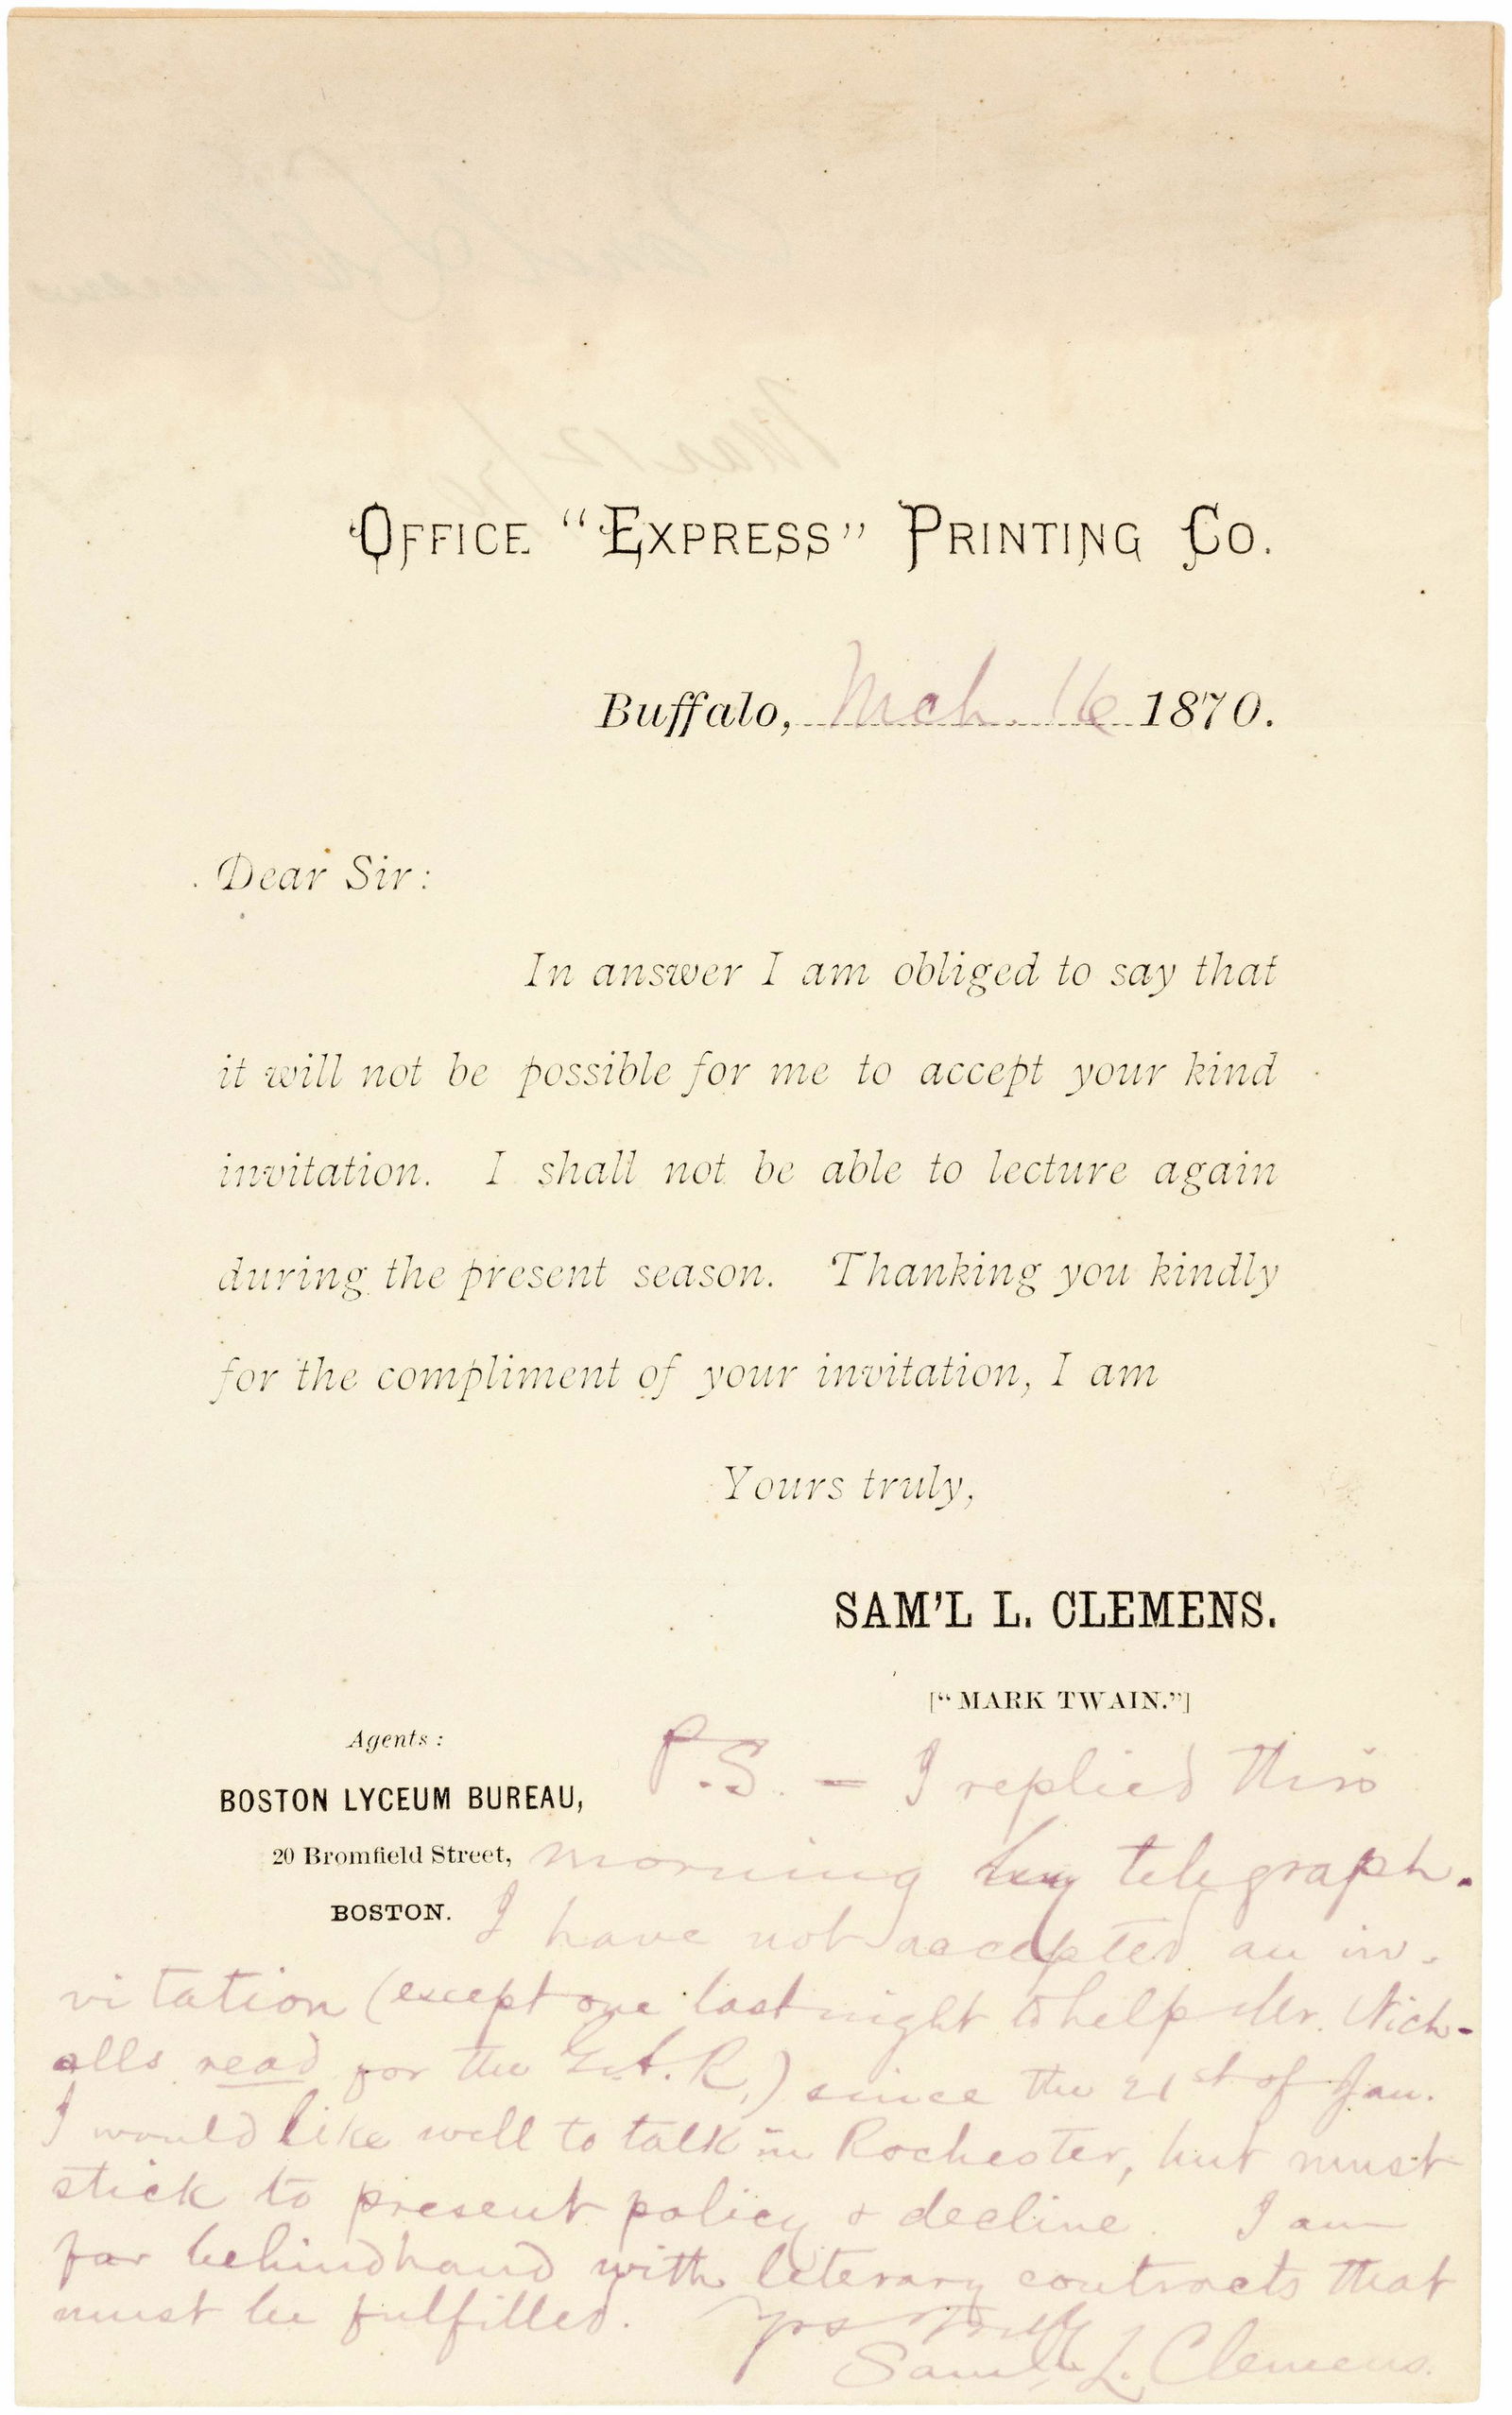 OFFICE “EXPRESS” PRINTING CO.
Buffalo, Mch. 16 1870.
Dear Sir:
In answer I am obliged to say that
it will not be possible for me to accept your kind
invitation. I shall not be able to lecture again
during the present season. Thanking you kindly
for the compliment of your invitation, I am
Yours truly,
SAM'L L. CLEMENS.
[“MARK TWAIN.”]
Agents:
BOSTON LYCEUM BUREAU,
20 Bromfield Street,
BOSTON.
P.S. — I replied this
morning by telegraph.
I have not accepted an in-
vitation (except one last night to help Mr. Nich-
olls read for the G.A.R.) since the 21st of Jan.
I would like well to talk in Rochester, but must
stick to present policy & decline. I am
far behindhand with literary contracts that
must be fulfilled. Yrs Truly
Sam'l L. Clemens.